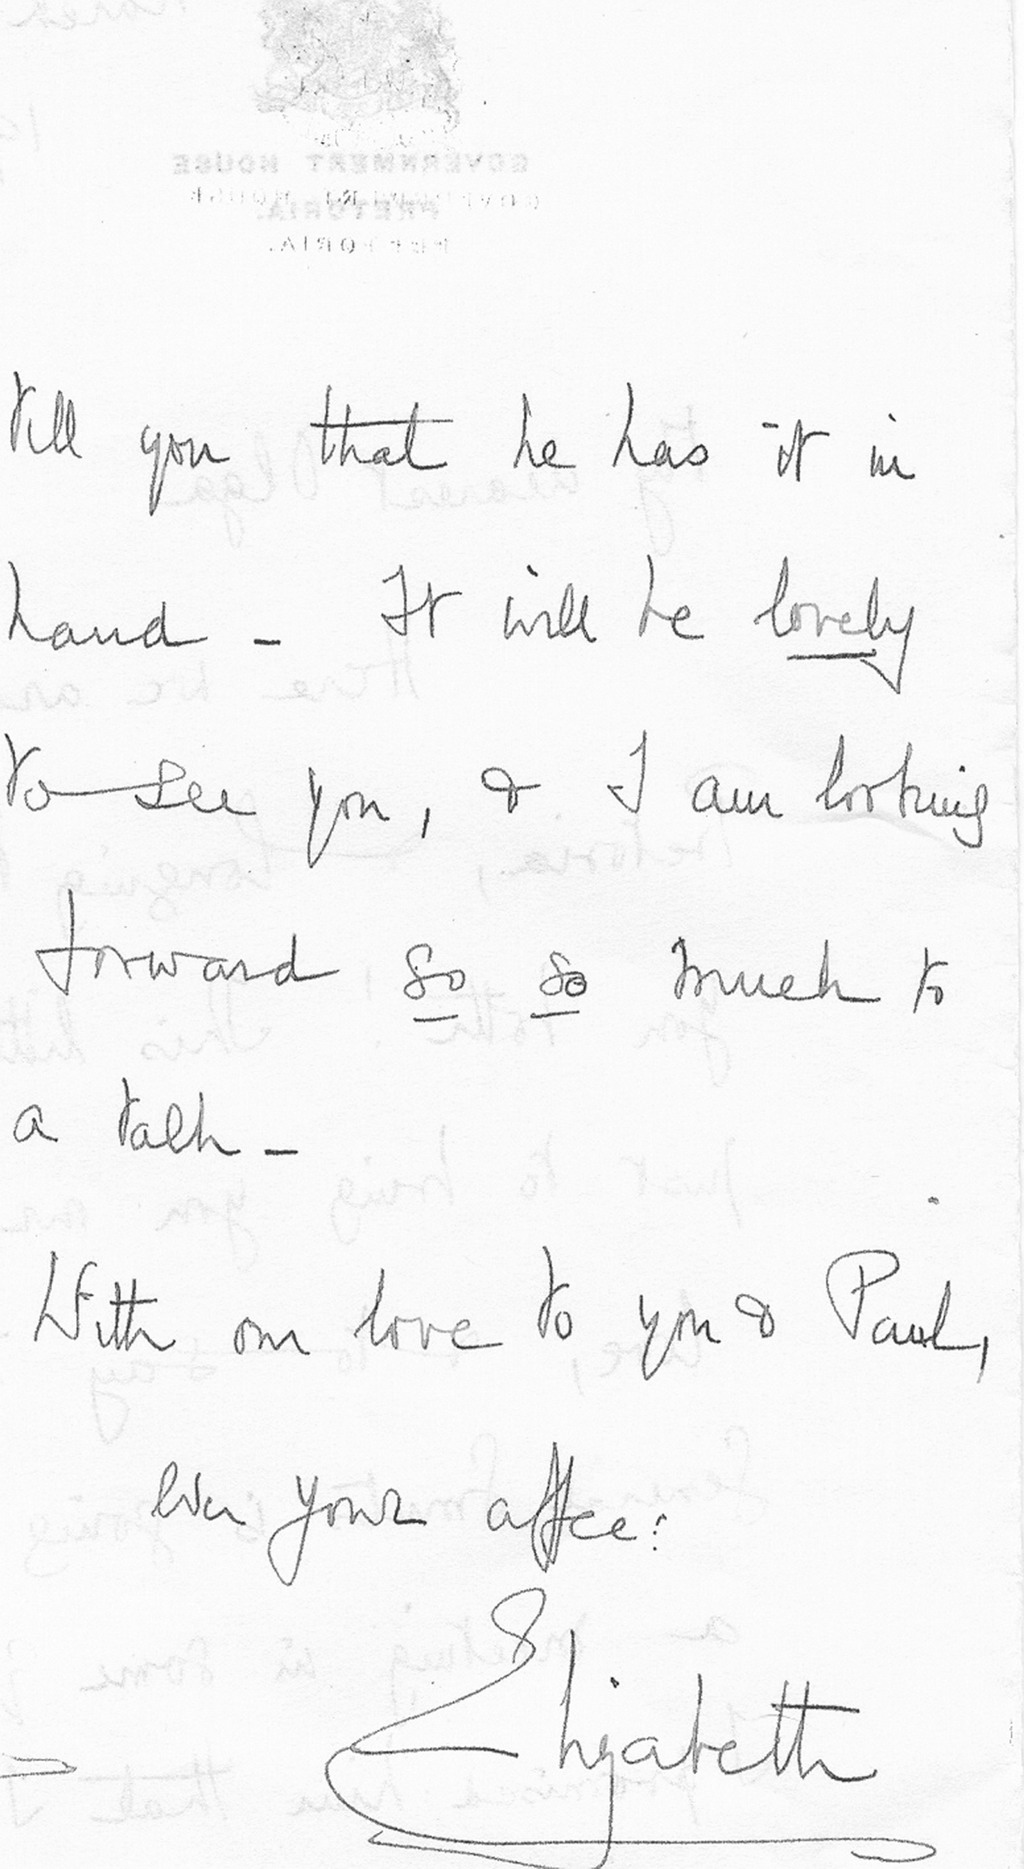 GOVERNMENT HOUSE
PRETORIA.
tell you that he has it in
hand – It will be lovely
to see you, & I am looking
forward so so much to
a talk –
With our love to you & Paul,
ever your affec:
Elizabeth